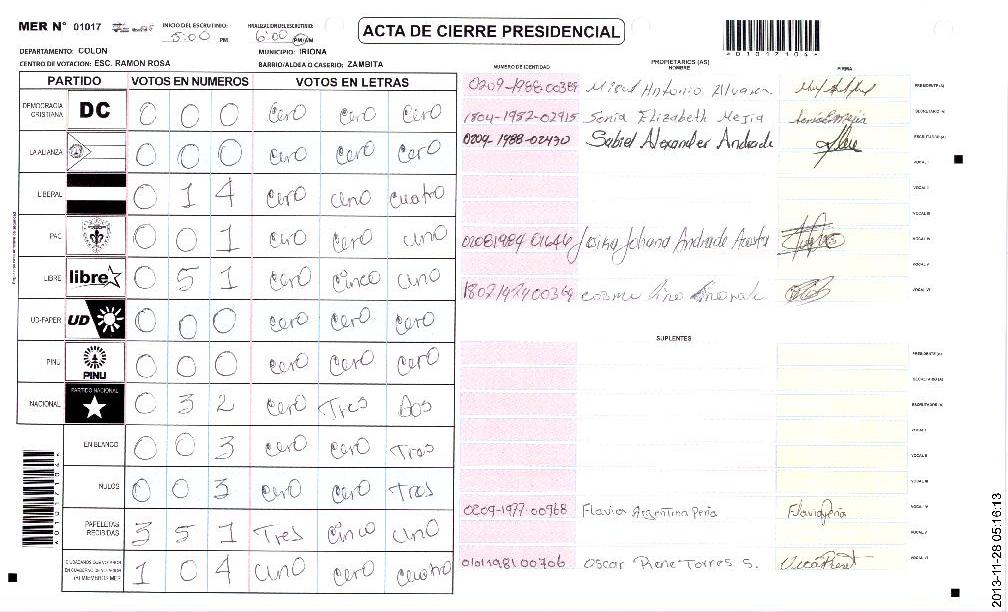 MER N° 01017
INICIO DEL ESCRUTINIO: 5:00 PM
FINALIZACION DEL ESCRUTINIO: 6:00 PM/AM
ACTA DE CIERRE PRESIDENCIAL
DEPARTAMENTO: COLON MUNICIPIO: IRIONA
CENTRO DE VOTACION: ESC. RAMON ROSA BARRIO/ALDEA O CASERIO: ZAMBITA
PARTIDO VOTOS EN NUMEROS VOTOS EN LETRAS
DEMOCRACIA CRISTIANA DC 0 0 0 cero cero cero
LA ALIANZA 0 0 0 cero cero cero
LIBERAL 0 1 4 cero uno cuatro
PAC 0 0 1 cero cero uno
LIBRE libre 0 5 1 cero cinco uno
UD-FAPER UD 0 0 0 cero cero cero
PINU PINU 0 0 0 cero cero cero
NACIONAL PARTIDO NACIONAL 0 3 2 cero Tres Dos
EN BLANCO 0 0 3 cero cero Tres
NULOS 0 0 3 cero cero Tres
PAPELETAS RECIBIDAS 3 5 1 Tres cinco uno
1 0 4 uno cero cuatro
4010171044
NUMERO DE IDENTIDAD PROPIETARIOS (AS) NOMBRE FIRMA
0209-1988-00389 Antonio PRESIDENTE (A)
1804-1982-02915 Sonia Elizabeth Mejia SECRETARIO (A)
0209-1988-02430 Alexander Andrade ESCRUTADOR (A)
VOCAL I
VOCAL II
VOCAL III
Johana Andrade Acosta VOCAL IV
VOCAL V
VOCAL VI
SUPLENTES
PRESIDENTE (A)
SECRETARIO (A)
ESCRUTADOR (A)
VOCAL I
VOCAL II
VOCAL III
0209-1977-00968 Flavia Argentina Peña Flavia Peña VOCAL IV
VOCAL V
0101198100706 Oscar Rene Torres S. VOCAL VI
2013-11-28 05:16:13